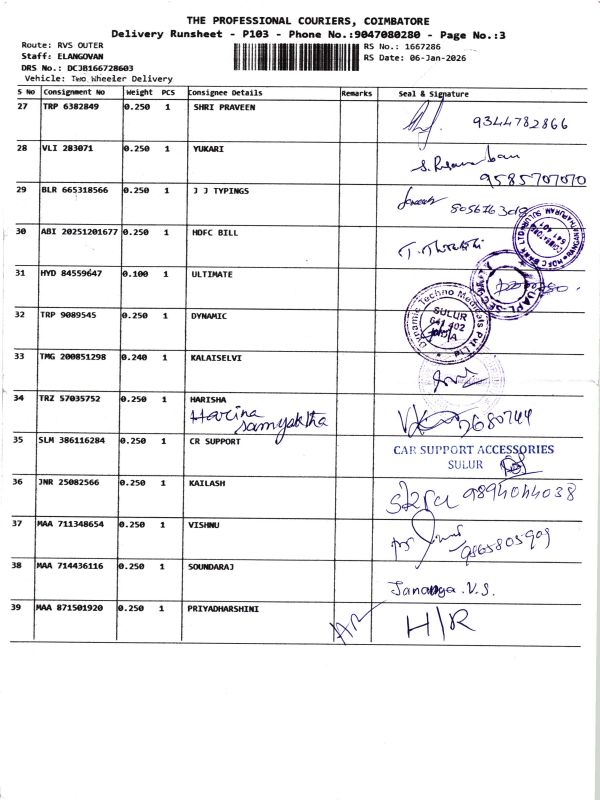 THE PROFESSIONAL COURIERS, COIMBATORE
Delivery Runsheet - P103 - Phone No.:9047080280 - Page No.:3
Route: RVS OUTER
RS No.: 1667286
Staff: ELANGOVAN
RS Date: 06-Jan-2026
DRS No.: DCJB166728603
Vehicle: Two Wheeler Delivery
S No Consignment No Weight PCS Consignee Details Remarks Seal & Signature
27 TRP 6382849 0.250 1 SHRI PRAVEEN
9344782866
28 VLI 283071 0.250 1 YUKARI
9585707070
29 BLR 665318566 0.250 1 J J TYPINGS
30 ABI 20251201677 0.250 1 HDFC BILL
31 HYD 84559647 0.100 1 ULTIMATE
32 TRP 9089545 0.250 1 DYNAMIC
Dynamic Techno Medicals Pvt Ltd
SULUR
641 402
33 TMG 200851298 0.240 1 KALAISELVI
34 TRZ 57035752 0.250 1 HARISHA
Harina
Samyuktha
35 SLM 386116284 0.250 1 CR SUPPORT
CAR SUPPORT ACCESSORIES
SULUR
36 JNR 25082566 0.250 1 KAILASH
9894044038
37 MAA 711348654 0.250 1 VISHNU
9865805909
38 MAA 714436116 0.250 1 SOUNDARAJ
Jananya.V.S.
39 MAA 871501920 0.250 1 PRIYADHARSHINI
H/R